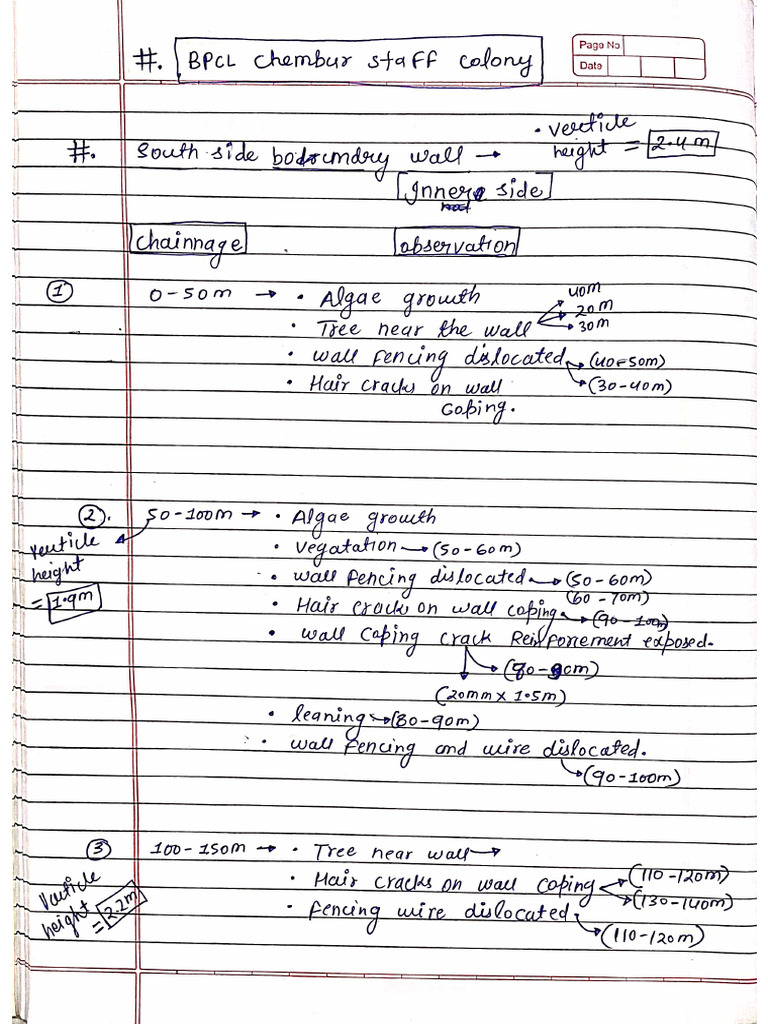 #. BPCL Chembur staff colony
Page No
Date
#. South side boundry wall → • verticle height = 2.4m
Inner side
Chainnage observation
① 0-50m → • Algae growth
• Tree near the wall → 40m → 20m → 30m
• wall fencing dislocated → (40-50m) → (30-40m)
• Hair cracks on wall
Coping.
②. 50-100m → • Algae growth
verticle height = 1.9m
• Vegatation → (50-60m)
• wall fencing dislocated → (50-60m)
(60-70m)
• Hair crack on wall coping → (90-100m)
• wall Coping crack Reinforement exposed.
→ (80-90m)
(20mm x 1.5m)
• leaning → (80-90m)
• wall fencing and wire dislocated.
→ (90-100m)
③ 100-150m → • Tree near wall →
verticle height = 2.2m
• Hair cracks on wall coping → (110-120m) → (130-140m)
• fencing wire dislocated → (110-120m)